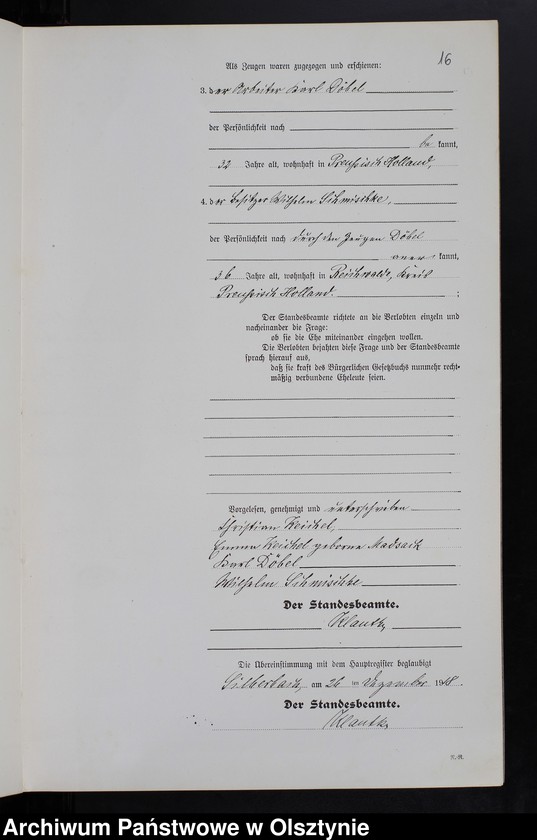 16
Als Zeugen waren zugezogen und erschienen:
3. der Arbeiter Karl Döbel
der Persönlichkeit nach
be kannt,
32 Jahre alt, wohnhaft in Preußisch Holland,
4. der Besitzer Wilhelm Schmischke,
der Persönlichkeit nach durch den Zeugen Döbel
aner kannt,
36 Jahre alt, wohnhaft in Reichwalde, Kreis
Preußisch Holland. ;
Der Standesbeamte richtete an die Verlobten einzeln und
nacheinander die Frage:
ob sie die Ehe miteinander eingehen wollen.
Die Verlobten bejahten diese Frage und der Standesbeamte
sprach hierauf aus,
daß sie kraft des Bürgerlichen Gesetzbuchs nunmehr recht-
mäßig verbundene Eheleute seien.
Vorgelesen, genehmigt und unterschrieben
Christian Keichel,
Emma Keichel geborne Madsack
Karl Döbel
Wilhelm Schmischke
Der Standesbeamte.
Klautk
Die Übereinstimmung mit dem Hauptregister beglaubigt
Silberbach, am 26 ten Dezember 1918.
Der Standesbeamte.
Klautk
Archiwum Państwowe w Olsztynie